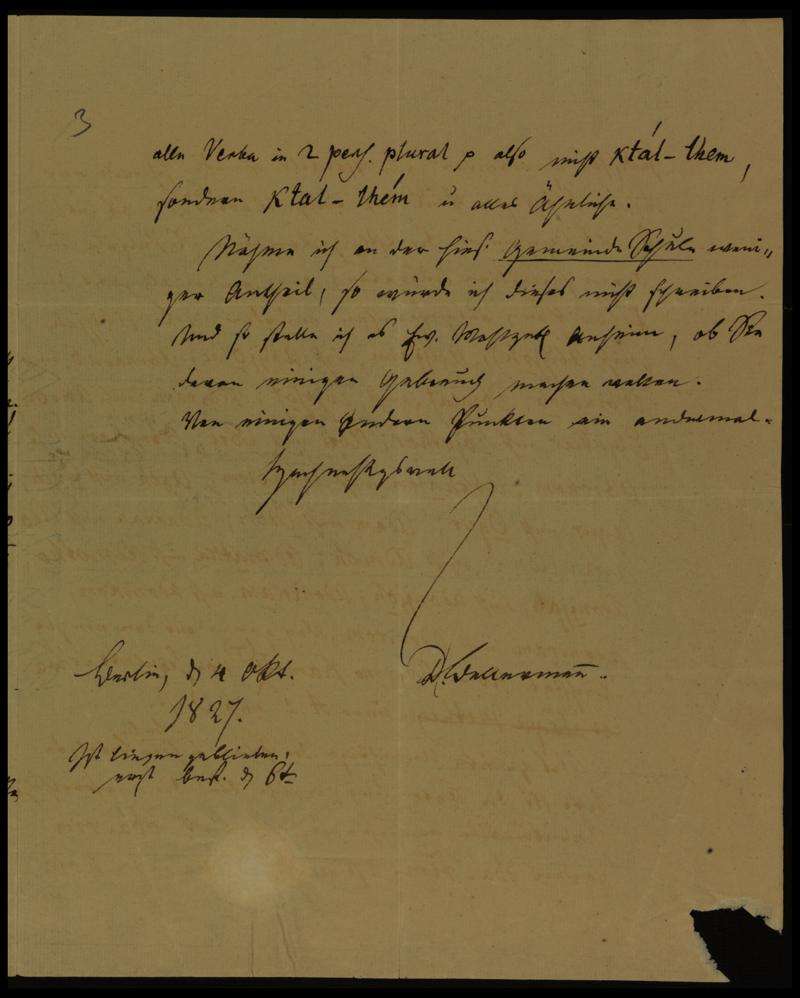 3
alle Verba in 2 pers. plural p also nicht Ktál-them,
sondern Ktal-thém u alles Ähnliche.
Nähme ich an der hies. Gemeinde Schule weni-
ger Antheil, so würde ich dieses nicht schreiben.
Und so stelle ich es Ew. Wohlgeb anheim, ob Sie
davon einigen Gebrauch machen wollen.
Von einigen andern Punkten ein andermal.
Hochachtungsvoll
Berlin, d 4 Okt.
1827.
D. Bellermann.
Ist liegen geblieben,
erst d 6t